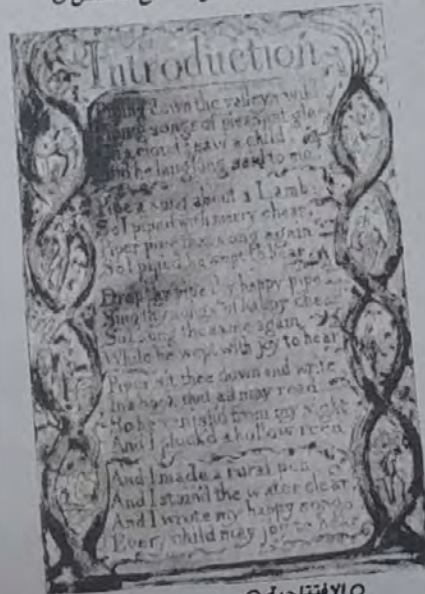 Introduction
Piping down the valleys wild
Piping songs of pleasant glee
On a cloud I saw a child
And he laughing said to me.
Pipe a song about a Lamb:
So I piped with merry chear,
Piper pipe that song again
So I piped, he wept to hear.
Drop thy pipe thy happy pipe
Sing thy songs of happy chear
So I sung the same again
While he wept with joy to hear
Piper sit thee down and write
In a book that all may read
So he vanish'd from my sight
And I pluck'd a hollow reed
And I made a rural pen
And I stain'd the water clear
And I wrote my happy songs
Every child may joy to hear